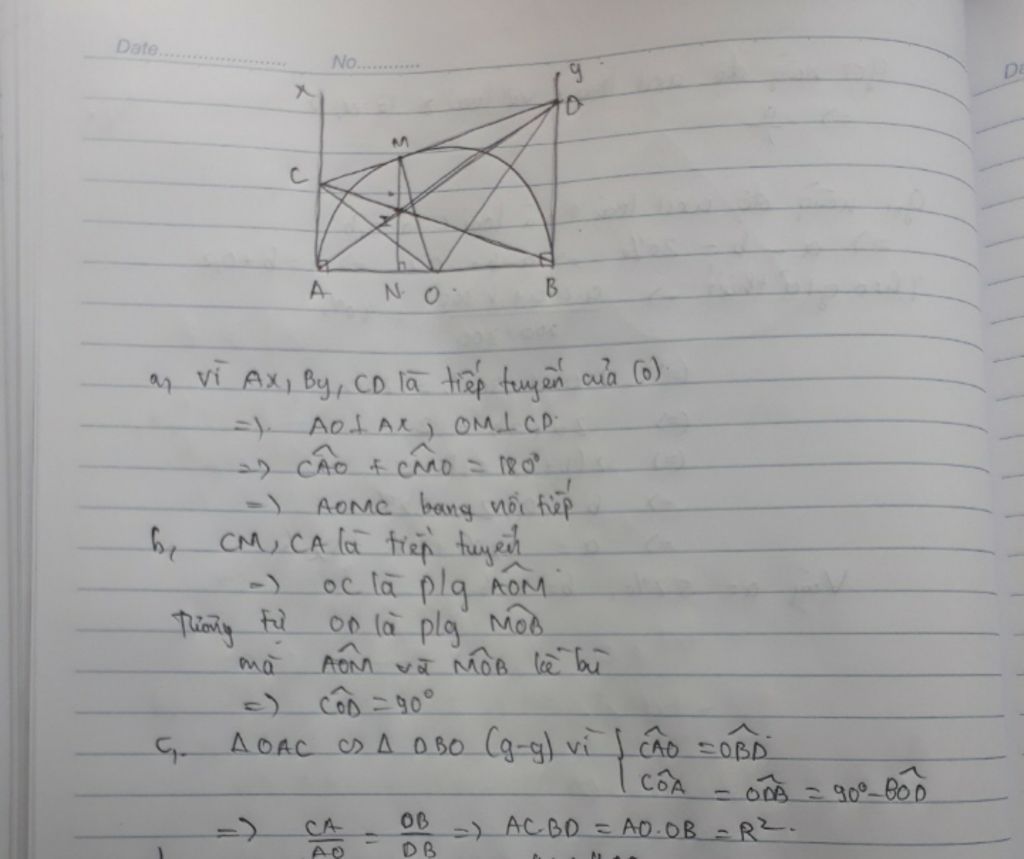 Date............ No............
x
y
D
M
C
I
A N O B
a, Vì Ax, By, CD là tiếp tuyến của (O)
=> AO ⊥ Ax, OM ⊥ CD
=> CÂO + CM̂O = 180°
=> AOMC bang nội tiếp
b, CM, CA là tiếp tuyến
=> OC là p/g AÔM
Tương tự OD là p/g MÔB
mà AÔM và MÔB kề bù
=> CÔD = 90°
c, Δ OAC ∽ Δ DBO (g-g) vì { CÂO = OB̂D
CÔA = OD̂B = 90° - BÔD
=> CA/AO = OB/DB => AC.BD = AO.OB = R².